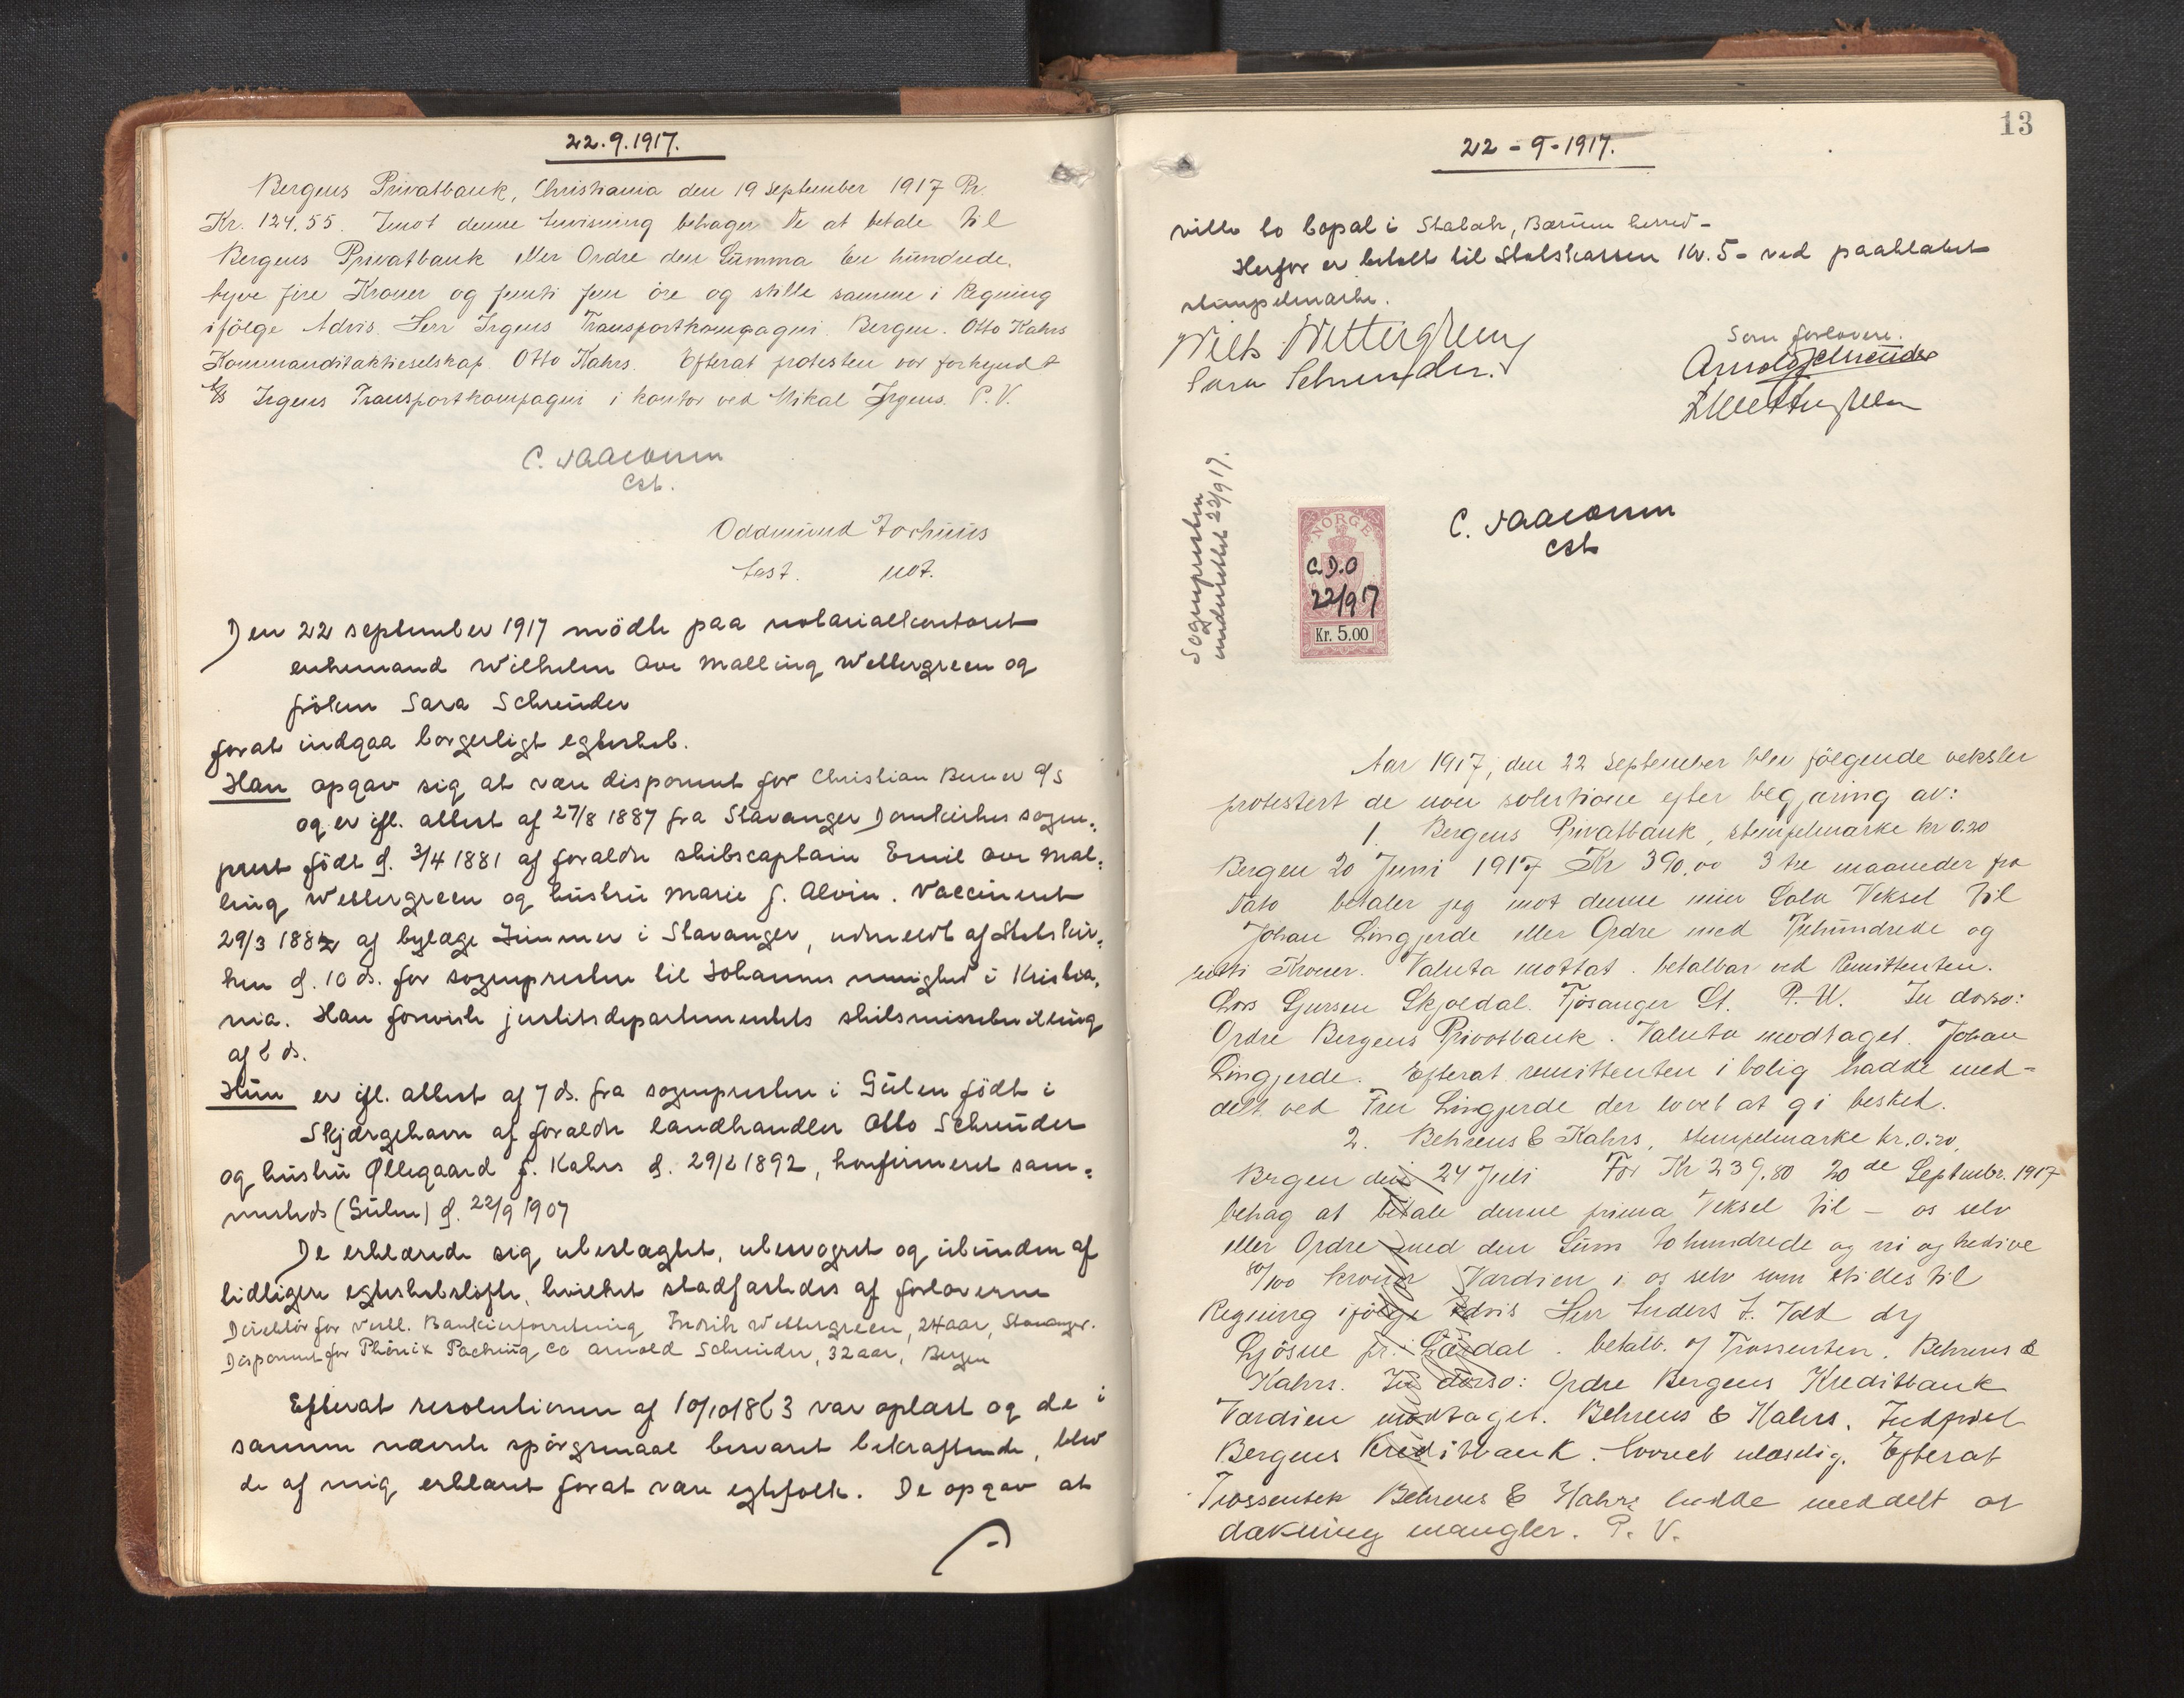 22.9.1917.
Bergens Privatbank, Christiania den 19 September 1917 Pr.
Kr. 124.55. Imot denne Anvisning behager De at betale til
Bergens Privatbank eller Ordre den Summa En hundrede
tyve fire Kroner og femti fem öre og stille samme i Regning
ifölge Advis. Herr Irgens Transportkompagni Bergen. Otto Kahrs
Kommanditaktieselskap. Otto Kahrs. Efterat protesten var forkyndt
A/S Irgens Transportkompagni i kontor ved Mikal Irgens. P.V.
C. Isaacsen
cst.
Oddmund
fast. not.
Den 22 september 1917 mödte paa notarialkontoret
enkemand Wilhelm Ove Malling Wettergreen og
fröken Sara Schreuder
forat indgaa borgerligt egteskab.
Han opgav sig at være disponent for Christian a/s
og er ifl. attest af 27/8 1887 fra Stavanger Domkirkes sogne=
prest födt d. 3/4 1881 af forældre skibscaptain Emil Ove Mal=
ling Wettergreen og hustru Marie f. Alvin. Vaccineret
29/3 1882 af bylæge Zimmer i Stavanger, udmeldt af Statskir=
ken d. 10 ds. for sognepresten til Johannes menighed i Kristia=
nia. Han foreviste justitsdepartementets skilsmissebevilling
af 6 ds.
Hun er ifl. attest af 7 ds. fra sognepresten i Gulen födt i
Skjærgehavn af forældre landhandler Otto Schreuder
og hustru Øllegaard f. Kahrs d. 29/6 1892, konfirmeret sam=
mesteds (Gulen) d. 22/9 1907
De erklærede sig ubeslægtet, ubesvogret og ubunden af
tidligere egteskabslöfte, hvilket stadfæstedes af forloverne
Direktör for Vestl. Bankierforretning Fredrik Wettergreen, 24 aar, Stavanger.
Disponent for Phönix Packing Co Arnold Schreuder, 32 aar, Bergen
Efterat resolutionen af 10/10 1863 var oplæst og de i
samme nævnte spörgsmaal besvaret bekræftende, blev
de af mig erklæret forat være egtefolk. De opgav at
13
22-9-1917.
ville ta bopæl i Stabæk, Bærum herred-
Herfor er betalt til Statskassen Kr. 5- ved paaklæbet
stempelmærke.
Wilh Wettergreen
Sara Schreuder.
Som forlovere.
Arnold Schreuder
Sognepresten
underrettet 22/9 17.
NORGE
C.D.O
22/9 17
Kr. 5.00
C. Isaacsen
cst
Aar 1917, den 22 September blev fölgende veksler
protestert de non solutione efter begjæring av:
1. Bergens Privatbank, stempelmærke kr 0.20
Bergen 20 Juni 1917 Kr 390,00 3 tre maaneder fra
Dato betaler jeg mot denne min Sola Veksel til
Johan Lingjerde eller Ordre med Trehundrede og
nitti Kroner. Valuta mottat. betalbar ved Remittenten.
Lars Larsen Skjoldal. Fjösanger St. P.U. In dorso:
Ordre Bergens Privatbank. Valuta modtaget. Johan
Lingjerde. Efterat remittenten i bolig hadde med=
delt ved Fru Lingjerde der lovet at gi besked.
2. Behrens & Kahrs, stempelmærke kr. 0.20,
Bergen den 24 Juli For Kr 239.80 20de Septembr. 1917
behag at betale denne prima Veksel til - os selv
eller Ordre med den Sum to hundrede og ni og tredive
80/100 kroner Værdien i os selv som stilles til
Regning ifölge Advis Herr Anders T. Told
Ljösne pr. Lærdal. betalb. o/ Trassenten. Behrens &
Kahrs. In dorso: Ordre Bergens Kreditbank
Værdien modtaget. Behrens & Kahrs.
Bergens Kreditbank. ulæselig. Efterat
Trassenten Behrens & Kahrs hadde meddelt at
dækning mangler. P.V.